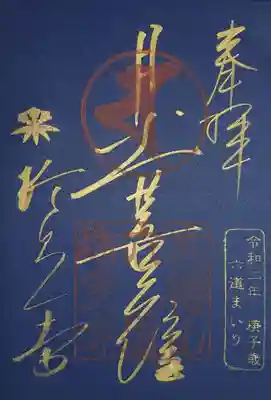 奉拝
令和二年 庚子歳
六道まいり
月光菩薩
珍皇寺